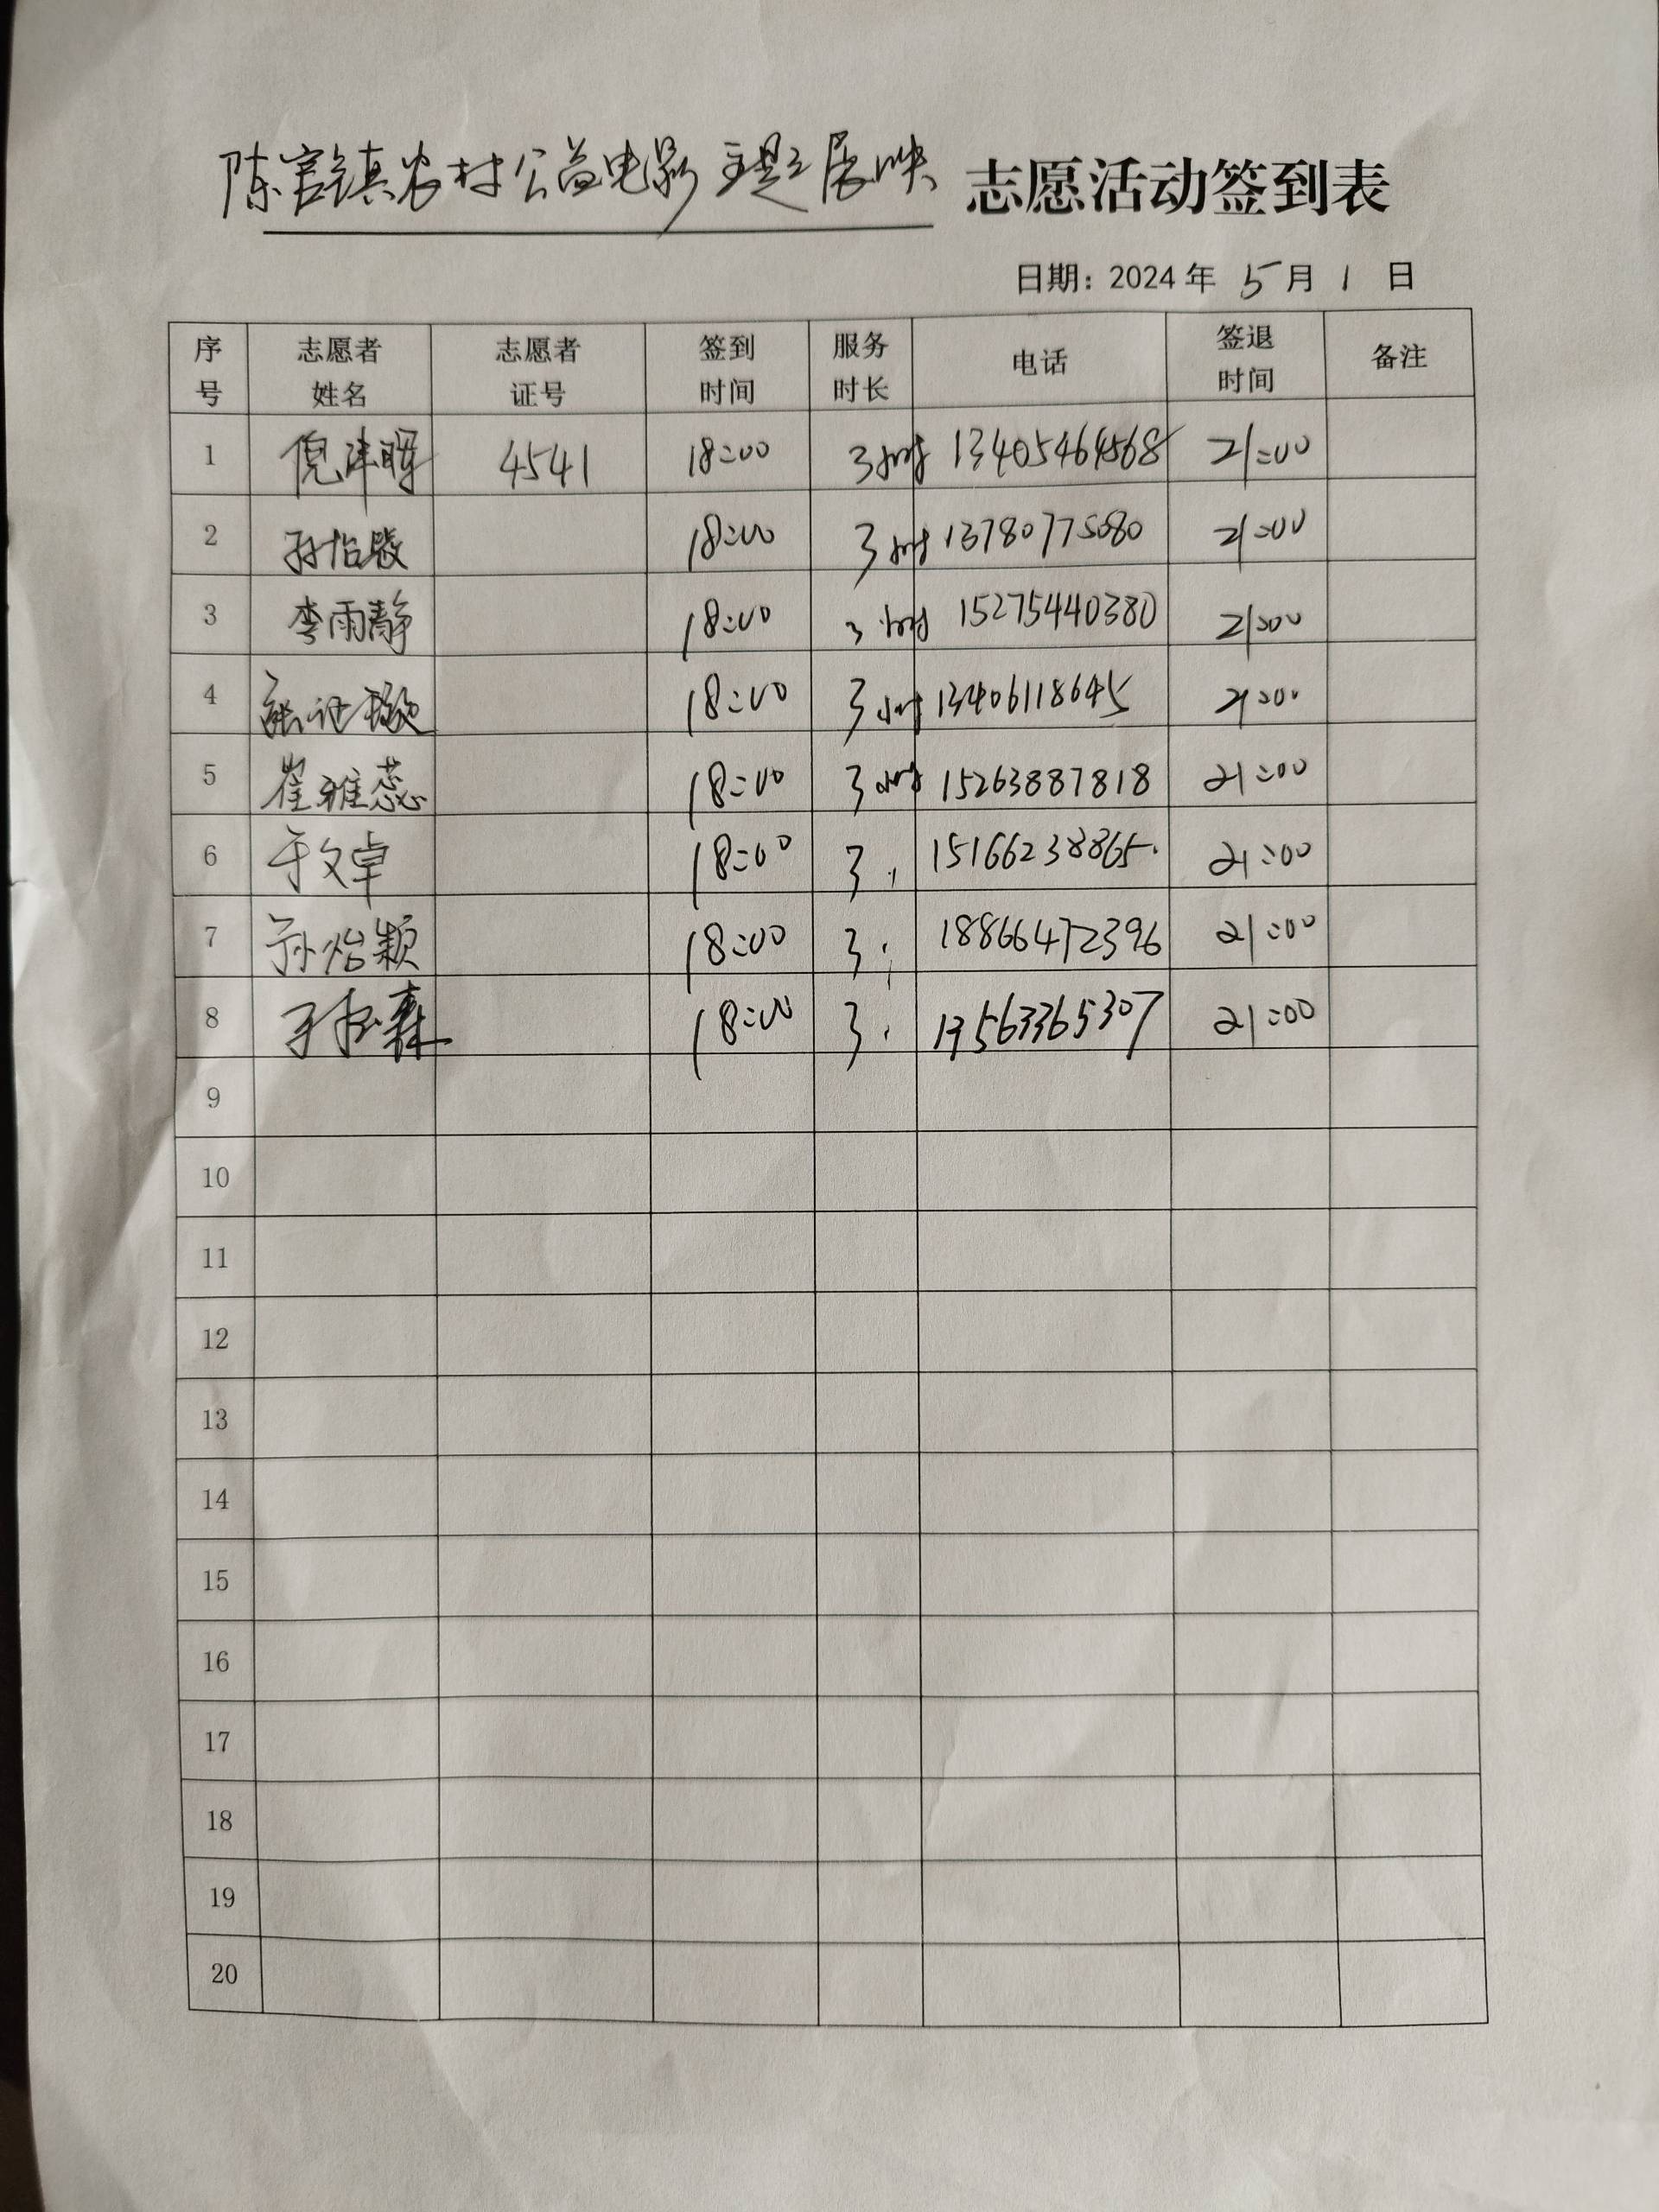 陈官镇农村公益电影主题展映 志愿活动签到表
日期：2024年 5月 1 日
序号 志愿者姓名 志愿者证号 签到时间 服务时长 电话 签退时间 备注
1 倪津晖 4541 18:00 3小时 13405464568 21:00
2 孙怡 18:00 3小时 13780775080 21:00
3 李雨静 18:00 3小时 15275440380 21:00
4 18:00 3小时 13406118645 21:00
5 崔雅蕊 18:00 3小时 15263887818 21:00
6 于文卓 18:00 3 15166238865 21:00
7 孙怡颖 18:00 3 18866472396 21:00
8 18:00 3 13563365307 21:00
9
10
11
12
13
14
15
16
17
18
19
20